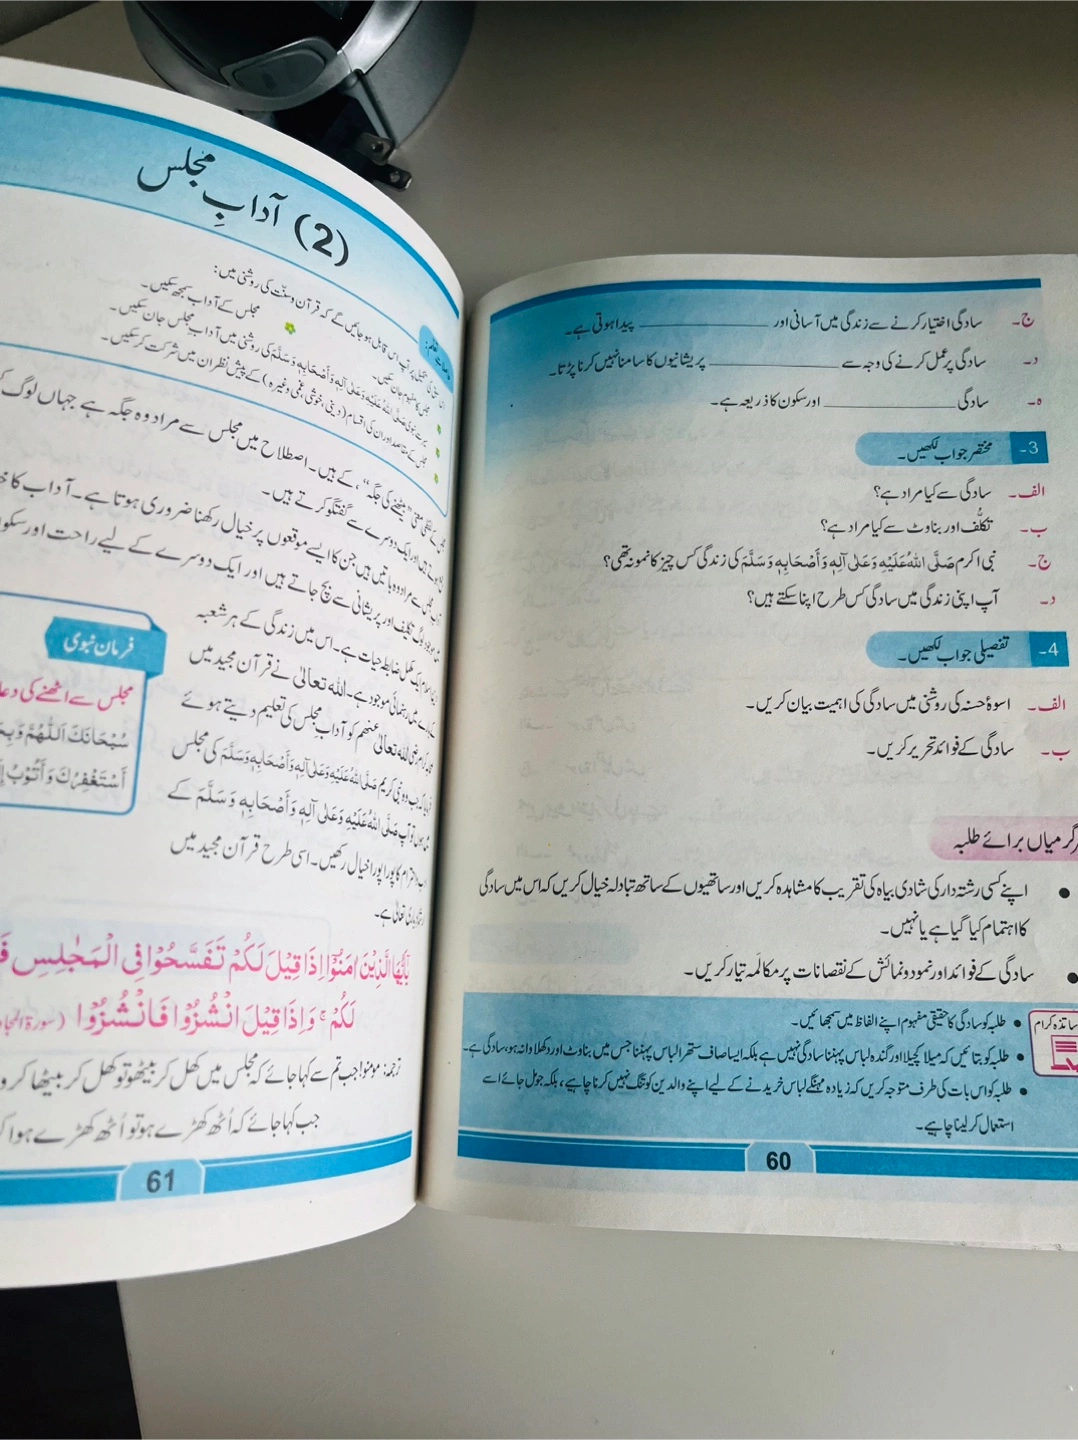 ج۔ سادگی اختیار کرنے سے زندگی میں آسانی اور ____________ پیدا ہوتی ہے۔
د۔ سادگی پر عمل کرنے کی وجہ سے ____________ پریشانیوں کا سامنا نہیں کرنا پڑتا۔
ہ۔ سادگی ____________ اور سکون کا ذریعہ ہے۔
3۔ مختصر جواب لکھیں۔
الف۔ سادگی سے کیا مراد ہے؟
ب۔ تکلّف اور بناوٹ سے کیا مراد ہے؟
ج۔ نبی اکرم صَلَّی اللہُ عَلَیْہِ وَعَلیٰ آلِہٖ وَأَصْحَابِہٖ وَسَلَّمَ کی زندگی کس چیز کا نمونہ تھی؟
د۔ آپ اپنی زندگی میں سادگی کس طرح اپنا سکتے ہیں؟
4۔ تفصیلی جواب لکھیں۔
الف۔ اسوۂ حسنہ کی روشنی میں سادگی کی اہمیت بیان کریں۔
ب۔ سادگی کے فوائد تحریر کریں۔
برائے طلبہ
• اپنے کسی رشتہ دار کی شادی بیاہ کی تقریب کا مشاہدہ کریں اور ساتھیوں کے ساتھ تبادلہ خیال کریں کہ اس میں سادگی
کا اہتمام کیا گیا ہے یا نہیں۔
• سادگی کے فوائد اور نمود و نمائش کے نقصانات پر مکالمہ تیار کریں۔
کرام
• طلبہ کو سادگی کا حقیقی مفہوم اپنے الفاظ میں سمجھائیں۔
• طلبہ کو بتائیں کہ میلا کچیلا اور گندہ لباس پہننا سادگی نہیں ہے بلکہ ایسا صاف ستھرا لباس پہننا جس میں بناوٹ اور دکھلاوا نہ ہو، سادگی ہے۔
• طلبہ کو اس بات کی طرف متوجہ کریں کہ زیادہ مہنگے لباس خریدنے کے لیے اپنے والدین کو تنگ نہیں کرنا چاہیے، بلکہ جو مل جائے اسے
استعمال کر لینا چاہیے۔
60
(2) آدابِ مجلس
اس قابل ہو جائیں گے کہ قرآن و سنّت کی روشنی میں:
مجلس کا مفہوم جان سکیں۔
مجلس کے آداب سمجھ سکیں۔
صَلَّی اللہُ عَلَیْہِ وَعَلیٰ آلِہٖ وَأَصْحَابِہٖ وَسَلَّمَ کی روشنی میں آدابِ مجلس جان سکیں۔
مجلس کے مقاصد اور ان کی اقسام (دینی، خوشی، غمی وغیرہ) کے پیش نظر ان میں شرکت کر سکیں۔
”بیٹھنے کی جگہ“، کے ہیں۔ اصطلاح میں مجلس سے مراد وہ جگہ ہے جہاں لوگ
اور ایک دوسرے سے گفتگو کرتے ہیں۔
سے مراد وہ باتیں ہیں جن کا ایسے موقعوں پر خیال رکھنا ضروری ہوتا ہے۔ آداب کا
تکلیف اور پریشانی سے بچ جاتے ہیں اور ایک دوسرے کے لیے راحت اور سکون
مکمل ضابطہ حیات ہے۔ اس میں زندگی کے ہر شعبہ
میں رہنمائی موجود ہے۔ اللہ تعالیٰ نے قرآن مجید میں
رضی اللہ تعالیٰ عنہم کو آدابِ مجلس کی تعلیم دیتے ہوئے
نبی کریم صَلَّی اللہُ عَلَیْہِ وَعَلیٰ آلِہٖ وَأَصْحَابِہٖ وَسَلَّمَ کی مجلس
آپ صَلَّی اللہُ عَلَیْہِ وَعَلیٰ آلِہٖ وَأَصْحَابِہٖ وَسَلَّمَ کے
احترام کا پورا پورا خیال رکھیں۔ اسی طرح قرآن مجید میں
تعالیٰ ہے۔
فرمان نبوی
مجلس سے اٹھنے کی دعا
سُبْحَانَكَ اَللّٰهُمَّ
اَسْتَغْفِرُكَ وَأَتُوْبُ
الَّذِيْنَ اٰمَنُوْٓا اِذَا قِيْلَ لَكُمْ تَفَسَّحُوْا فِى الْمَجٰلِسِ
لَكُمْ ۚ وَاِذَا قِيْلَ انْشُزُوْا فَانْشُزُوْا (سورۃ
ترجمہ: مومنو! جب تم سے کہا جائے کہ مجلس میں کھل کر بیٹھو تو کھل کر بیٹھا کرو
جب کہا جائے کہ اُٹھ کھڑے ہو تو اُٹھ کھڑے ہوا
61